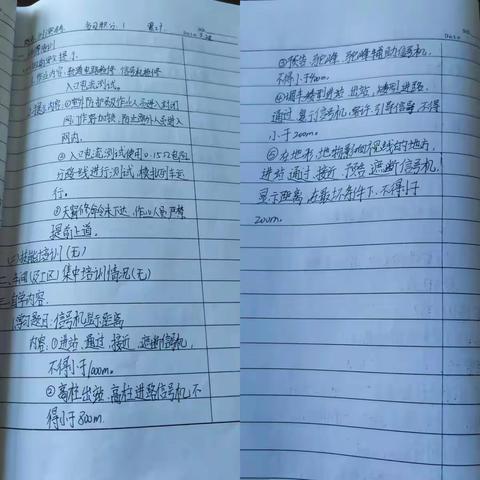 学习积分: 1
1.作业内容: 轨道电路检修 信号机检修
入口电流测试。
2.提示内容: ①室外防护员及作业人员进入封闭
网门作好加锁, 防止路外人员进入
网内。
②入口电流测试使用0.15Ω电阻
分路线进行测试, 模拟列车运
行。
③天窗修命令未下达, 作业人员严禁
提前上道。
(二)技能性培训(无)
二、车间(及工区)集中培训情况(无)
三、自学内容
1.学习题目: 信号机显示距离
内容: ①进站, 通过, 接近, 遮断信号机,
不得小于1000m。
②高柱出站, 高柱进路信号机, 不
得小于800m.
③预告, 驼峰, 驼峰辅助信号机,
不得小于400m.
④调车矮型进站 出站, 矮型进路,
通过 复示信号机, 容许, 引导信号, 不得
小于200m。
⑤在地形, 地物影响视线的地方,
进站 通过, 接近, 预告, 遮断信号机
显示距离, 在最坏条件下, 不得小于
200m。